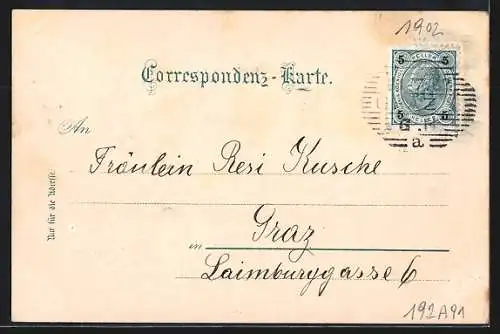 1902
Correspondenz-Karte.
5 5
5 5
a
An
Fräulein Resi Kusche
Graz
in
Laimburggasse 6
Nur für die Adresse
192A91